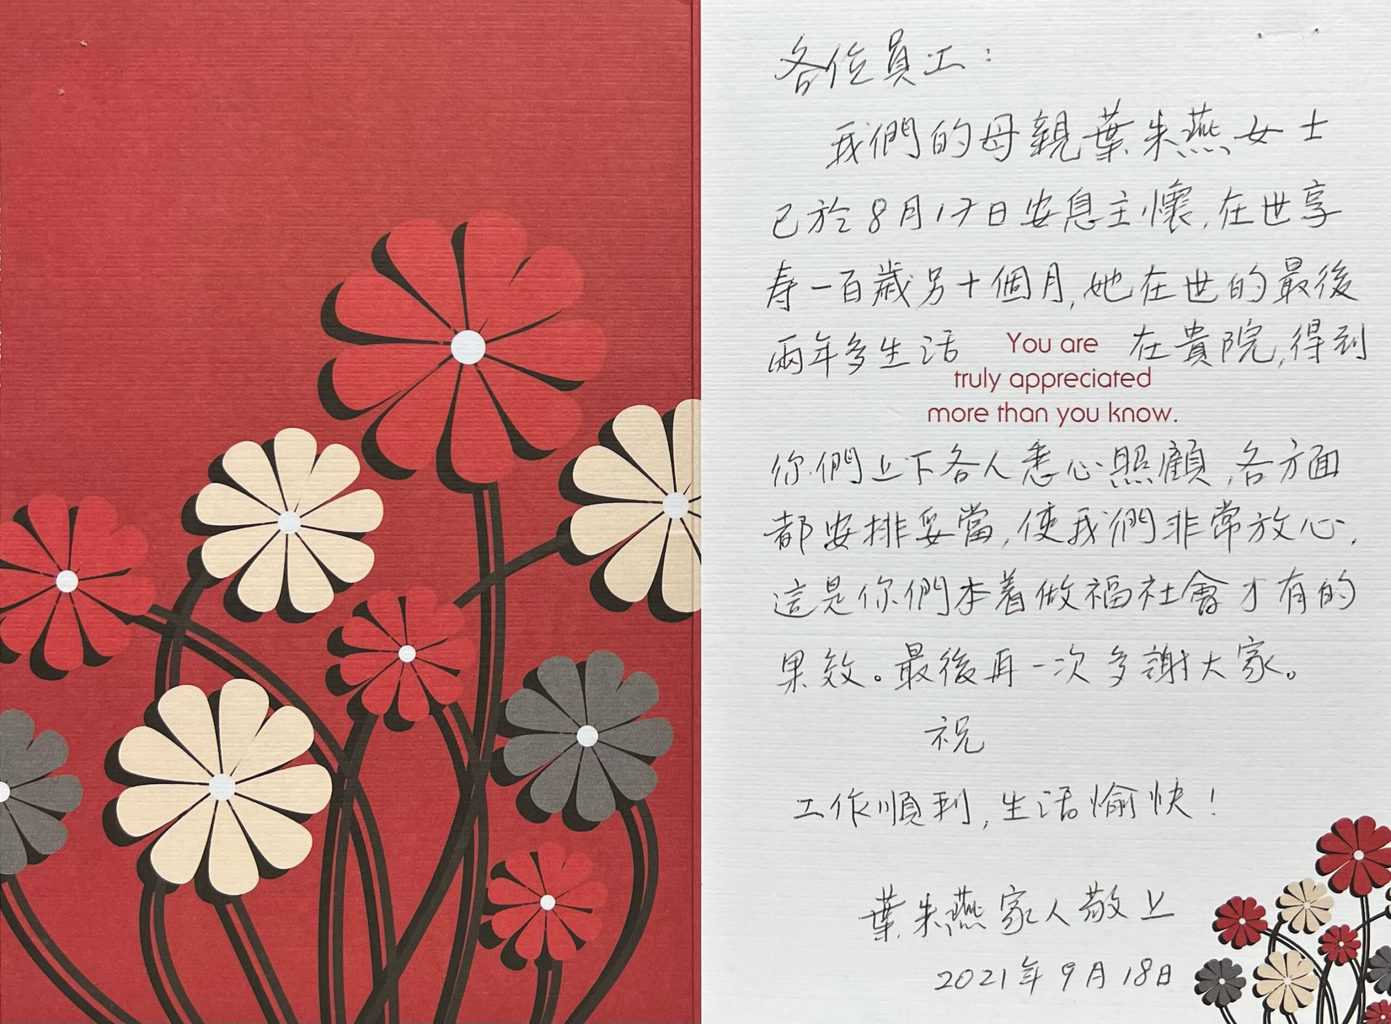 各位員工：
我們的母親葉朱燕女士
已於8月17日安息主懷,在世享
寿一百歲另十個月,她在世的最後
兩年多生活
You are
在貴院,得到
truly appreciated
more than you know.
你們上下各人悉心照顧,各方面
都安排妥當,使我們非常放心.
這是你們本着做福社會才有的
果效。最後再一次多謝大家。
祝
工作順利,生活愉快!
葉朱燕家人敬上
2021年9月18日